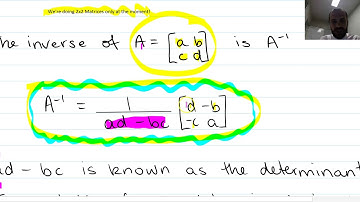 We're doing 2x2 Matrices only at the moment!
he inverse of A = [a b
c d] is A⁻¹
A⁻¹ = 1 / (ad - bc) [d -b
-c a]
ad - bc is known as the determinant